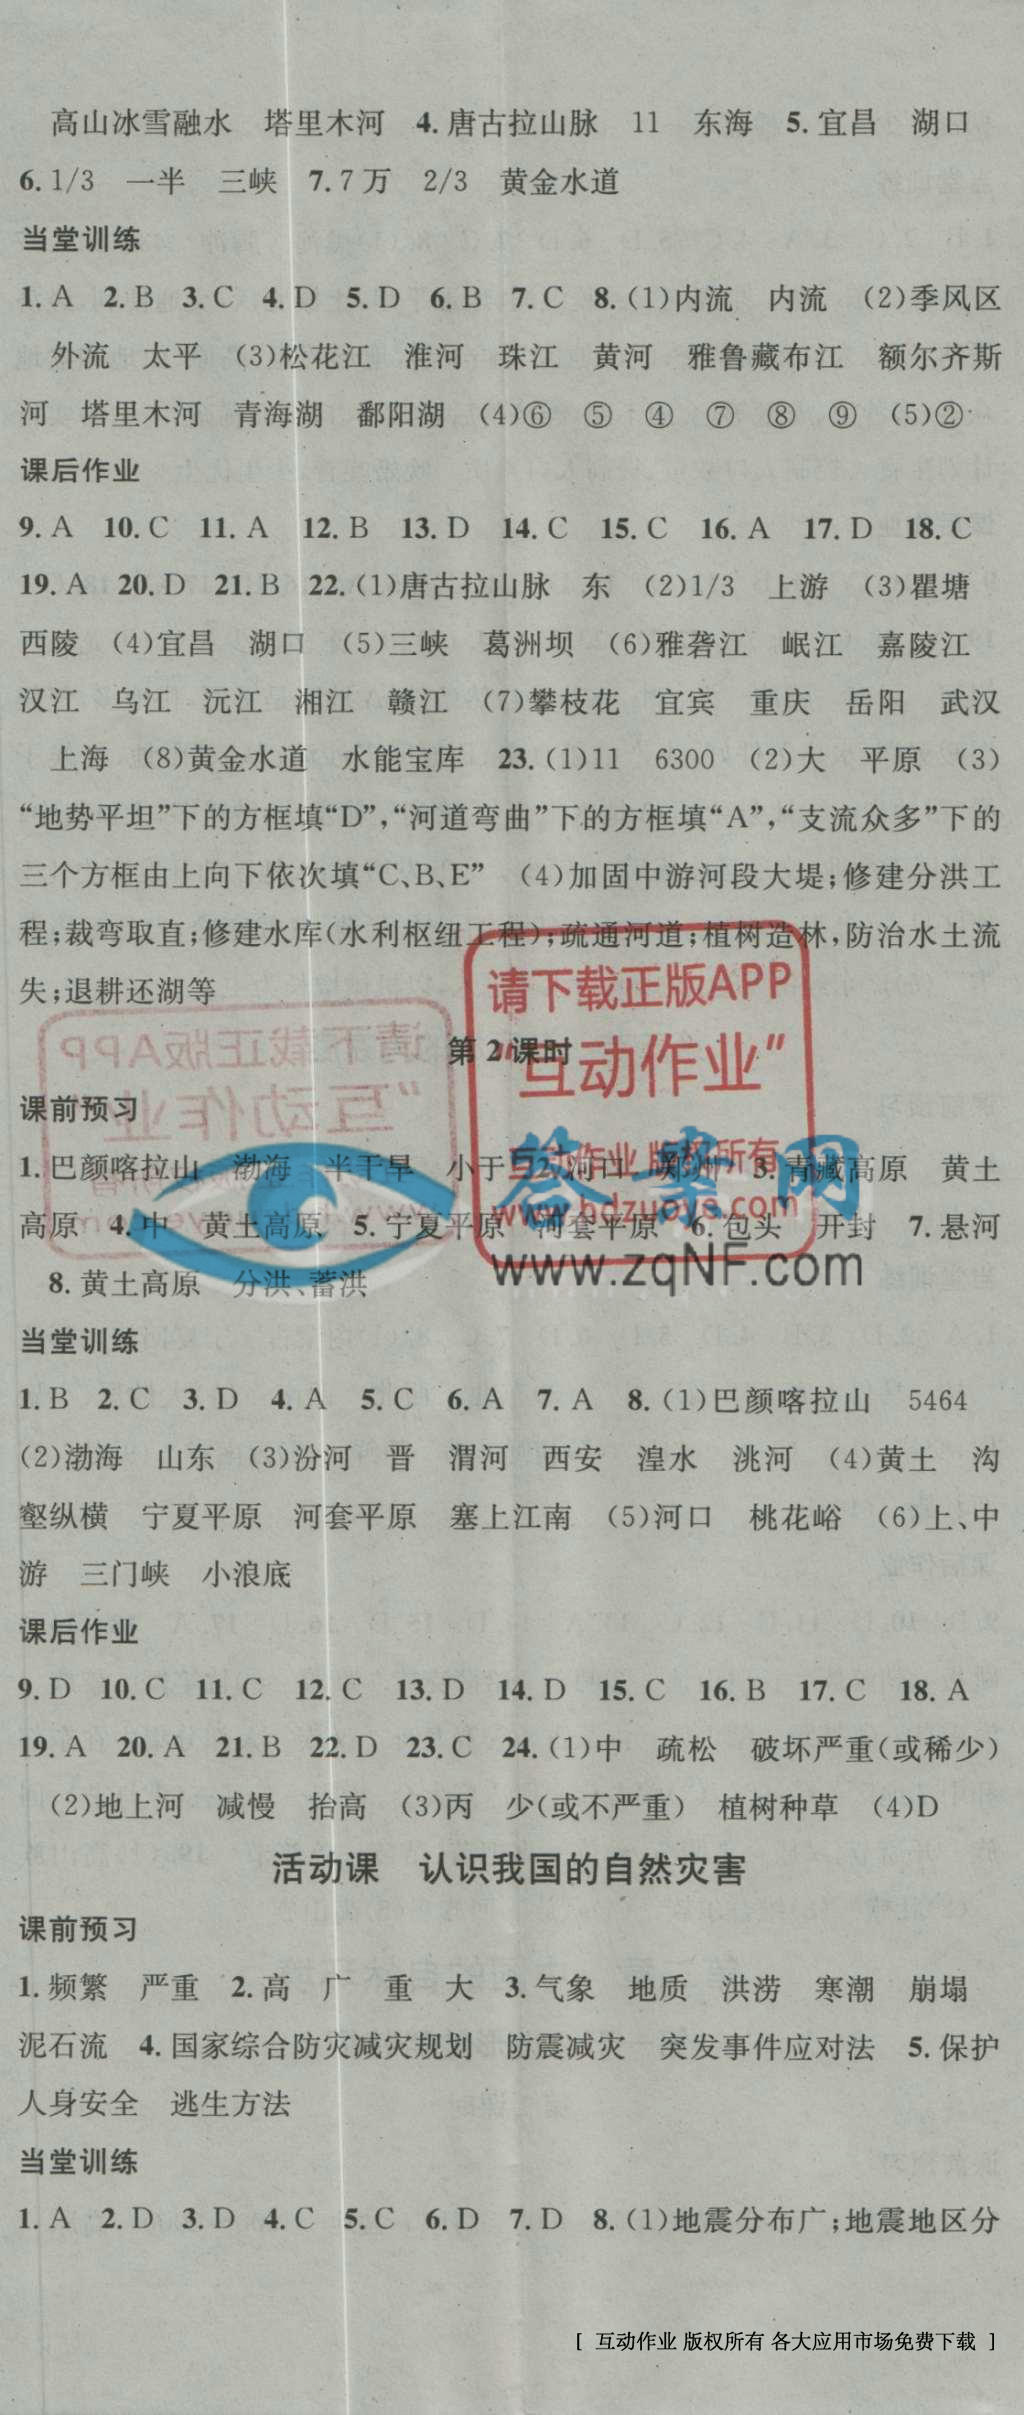 高山冰雪融水　塔里木河　4.唐古拉山脉　11　东海　5.宜昌　湖口
6.1/3　一半　三峡　7.7万　2/3　黄金水道
当堂训练
1.A　2.B　3.C　4.D　5.D　6.B　7.C　8.(1)内流　内流　(2)季风区
外流　太平　(3)松花江　淮河　珠江　黄河　雅鲁藏布江　额尔齐斯
河　塔里木河　青海湖　鄱阳湖　(4)⑥　⑤　④　⑦　⑧　⑨　(5)②
课后作业
9.A　10.C　11.A　12.B　13.D　14.C　15.C　16.A　17.D　18.C
19.A　20.D　21.B　22.(1)唐古拉山脉　东　(2)1/3　上游　(3)瞿塘
西陵　(4)宜昌　湖口　(5)三峡　葛洲坝　(6)雅砻江　岷江　嘉陵江
汉江　乌江　沅江　湘江　赣江　(7)攀枝花　宜宾　重庆　岳阳　武汉
上海　(8)黄金水道　水能宝库　23.(1)11　6300　(2)大　平原　(3)
“地势平坦”下的方框填“D”,“河道弯曲”下的方框填“A”,“支流众多”下的
三个方框由上向下依次填“C、B、E”　(4)加固中游河段大堤;修建分洪工
程;裁弯取直;修建水库(水利枢纽工程);疏通河道;植树造林,防治水土流
失;退耕还湖等
请下载正版APP
“互动作业”
互动作业 版权所有
www.hdzuoye.com
第2课时
课前预习
1.巴颜喀拉山　渤海　半干旱　小于　2.河口　郑州　3.青藏高原　黄土
高原　4.中　黄土高原　5.宁夏平原　河套平原　6.包头　开封　7.悬河
8.黄土高原　分洪、蓄洪
答案网
www.zqNF.com
当堂训练
1.B　2.C　3.D　4.A　5.C　6.A　7.A　8.(1)巴颜喀拉山　5464
(2)渤海　山东　(3)汾河　晋　渭河　西安　湟水　洮河　(4)黄土　沟
壑纵横　宁夏平原　河套平原　塞上江南　(5)河口　桃花峪　(6)上、中
游　三门峡　小浪底
课后作业
9.D　10.C　11.C　12.C　13.D　14.D　15.C　16.B　17.C　18.A
19.A　20.A　21.B　22.D　23.C　24.(1)中　疏松　破坏严重(或稀少)
(2)地上河　减慢　抬高　(3)丙　少(或不严重)　植树种草　(4)D
活动课　认识我国的自然灾害
课前预习
1.频繁　严重　2.高　广　重　大　3.气象　地质　洪涝　寒潮　崩塌
泥石流　4.国家综合防灾减灾规划　防震减灾　突发事件应对法　5.保护
人身安全　逃生方法
当堂训练
1.A　2.D　3.D　4.C　5.C　6.D　7.D　8.(1)地震分布广;地震地区分
[ 互动作业 版权所有 各大应用市场免费下载 ]